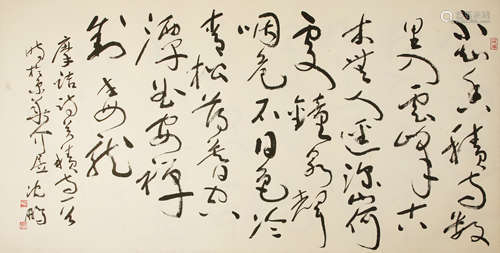 不知香積寺數
里入雲峰古
木無人徑深山何
處鐘泉聲
咽危石日色冷
青松薄暮空
潭曲安禪
制毒龍
摩詰詩香積寺一首
時於京華介居沈鵬